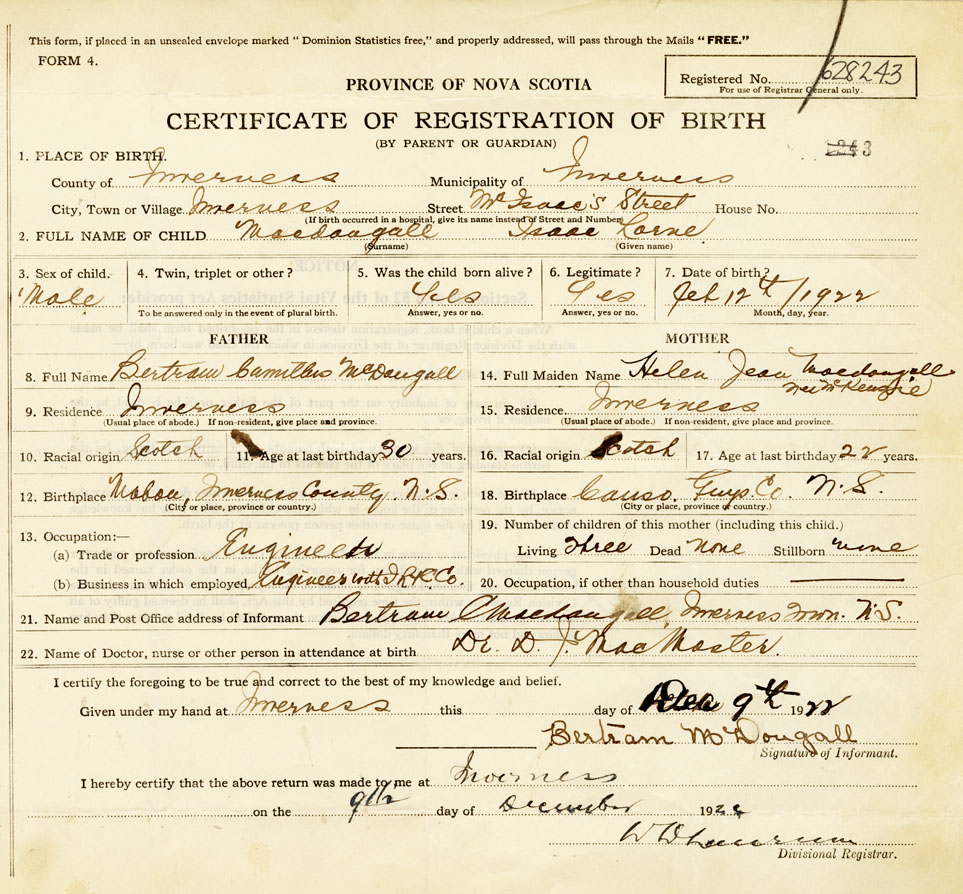 This form, if placed in an unsealed envelope marked "Dominion Statistics free," and properly addressed, will pass through the Mails "FREE."
FORM 4.
Registered No. 628243
For use of Registrar General only.
PROVINCE OF NOVA SCOTIA
CERTIFICATE OF REGISTRATION OF BIRTH
(BY PARENT OR GUARDIAN)
1. PLACE OF BIRTH.
County of Inverness Municipality of Inverness
City, Town or Village Inverness Street McIsaac's Street House No.
(If birth occurred in a hospital, give its name instead of Street and Number)
2. FULL NAME OF CHILD Macdougall Isaac Lorne
(Surname) (Given name)
3. Sex of child. 4. Twin, triplet or other? 5. Was the child born alive? 6. Legitimate? 7. Date of birth?
Male Yes Yes Feb 12th/1922
To be answered only in the event of plural birth. Answer, yes or no. Answer, yes or no. Month, day, year.
FATHER MOTHER
8. Full Name Bertram McDougall
14. Full Maiden Name Helen Jean Macdougall
nee McKenzie
9. Residence Inverness
15. Residence. Inverness
(Usual place of abode.) If non-resident, give place and province.
(Usual place of abode.) If non-resident, give place and province.
10. Racial origin Scotch 11. Age at last birthday 30 years.
16. Racial origin Scotch 17. Age at last birthday 22 years.
12. Birthplace Mabou, Inverness County. N.S.
18. Birthplace Canso, Guys. Co. N.S.
(City or place, province or country.)
(City or place, province of country.)
13. Occupation:—
19. Number of children of this mother (including this child.)
(a) Trade or profession Engineer
Living three Dead None Stillborn none
(b) Business in which employed Engineer with Co.
20. Occupation, if other than household duties
21. Name and Post Office address of Informant Bertram C Macdougall, Inverness N.S.
22. Name of Doctor, nurse or other person in attendance at birth Dr. D. J. MacMaster.
I certify the foregoing to be true and correct to the best of my knowledge and belief.
Given under my hand at Inverness this day of Dec 9th 1922
Bertram McDougall
Signature of Informant.
I hereby certify that the above return was made to me at Inverness
on the 9th day of December 1922
Divisional Registrar.